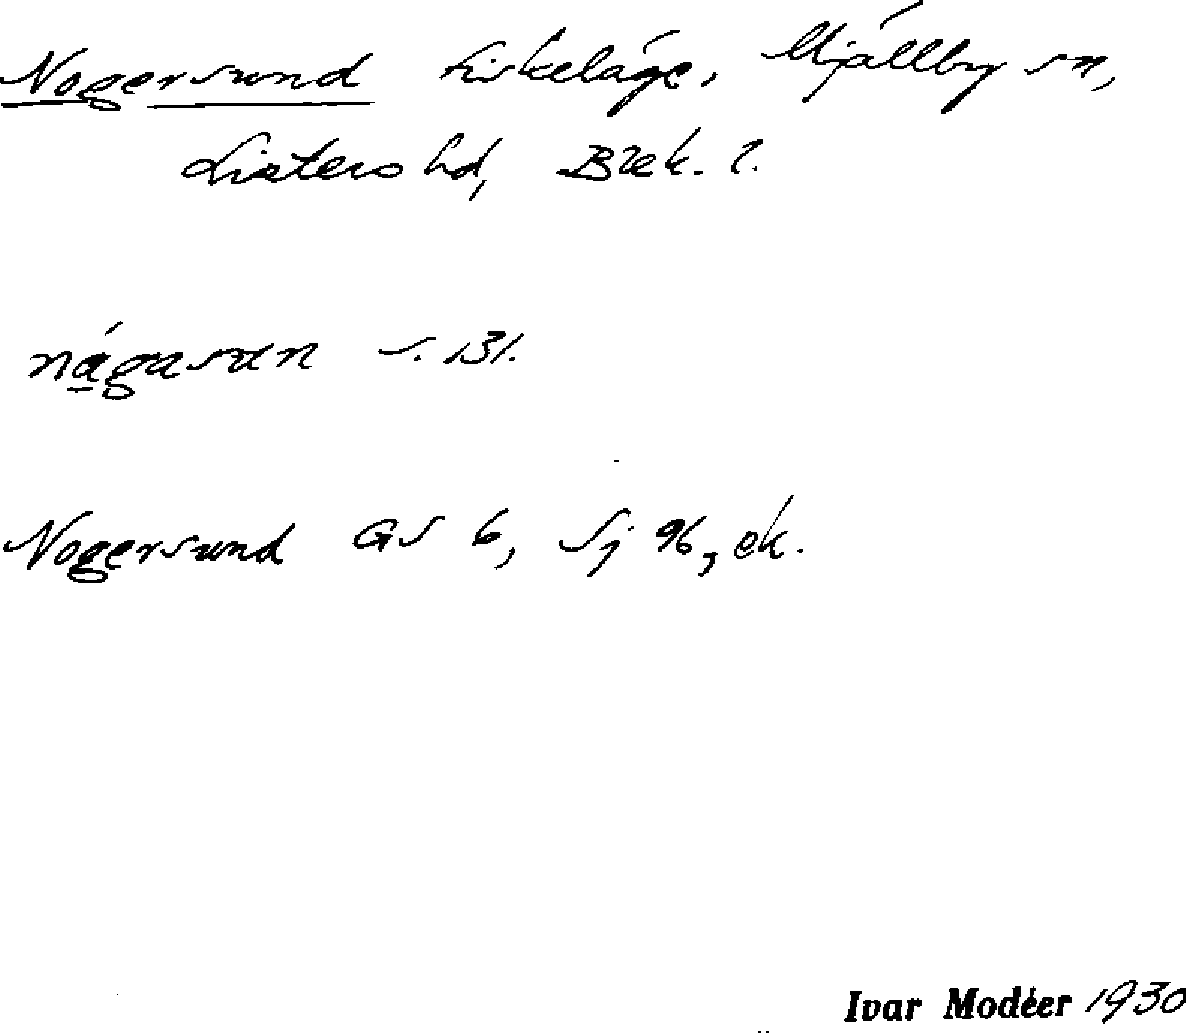 Nogersund fiskeläge, Mjällby sn,
Listers hd, Blek. l.
nágasun s. 131.
Nogersund GS 6, Sj 96, ek.
Ivar Modéer 1930